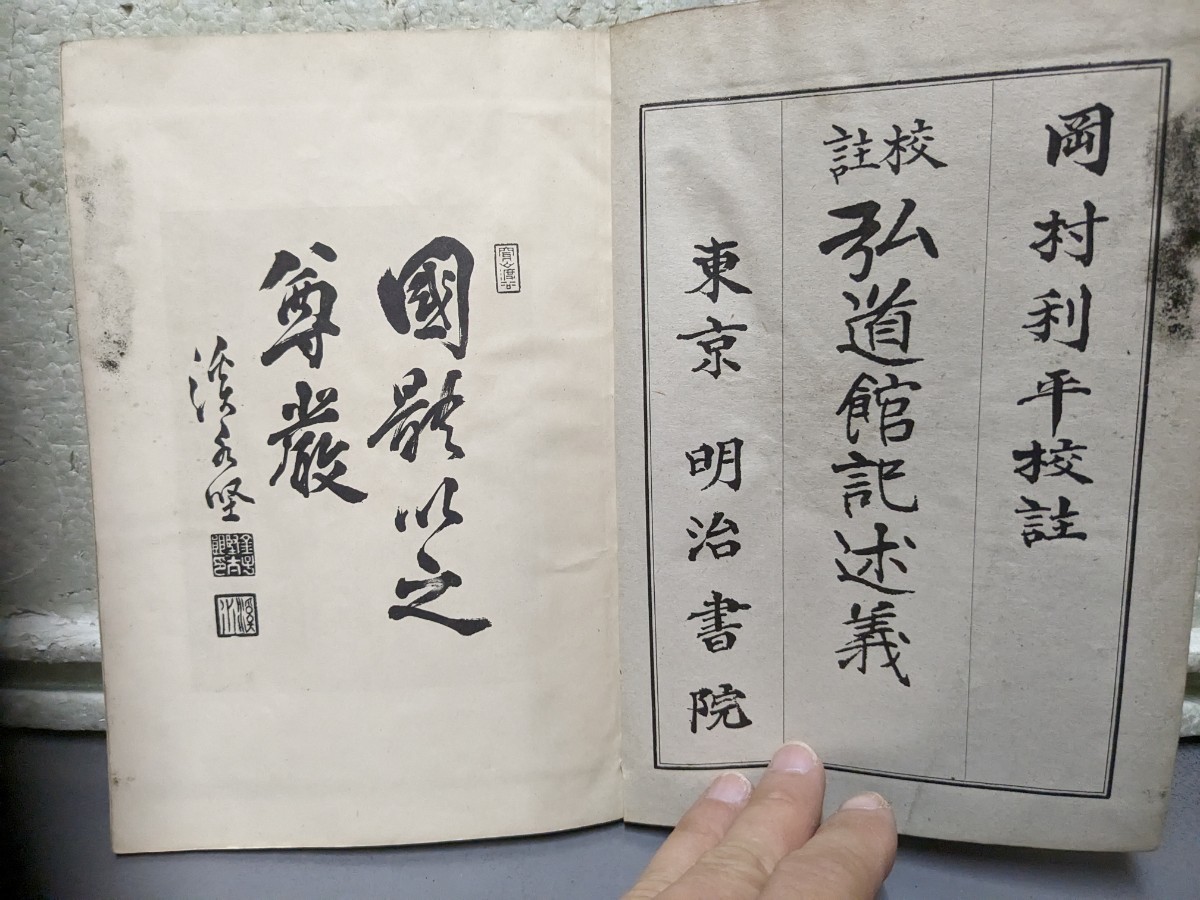 岡村利平校註
校註 弘道館記述義
東京 明治書院
國體以之
尊嚴